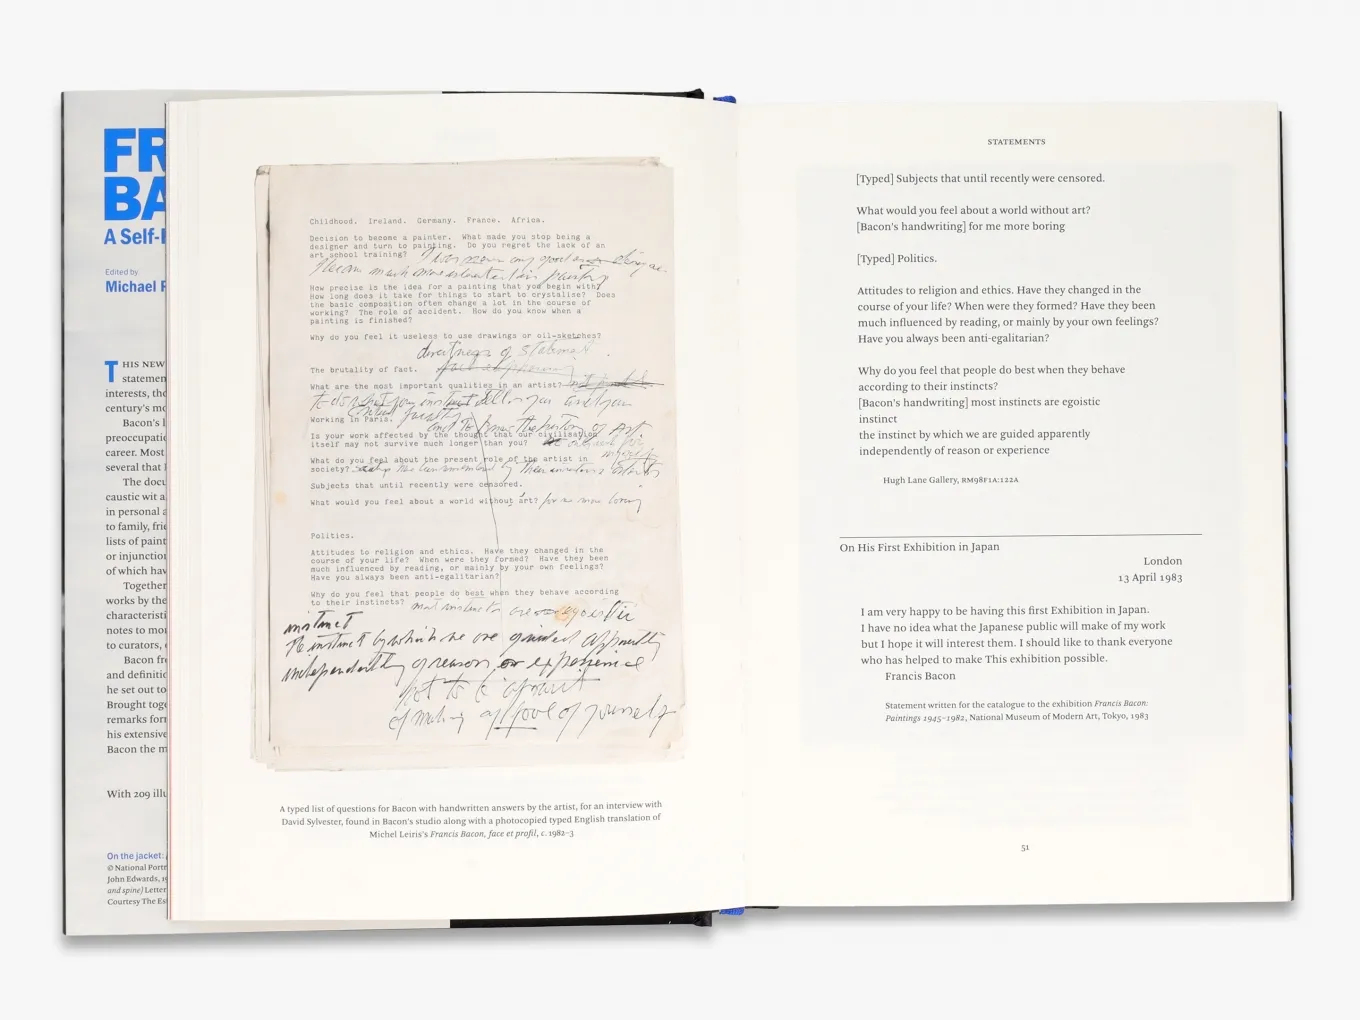 FR
BA
A Self-
Edited by
Michael
THIS NEW
statemen
interests, tho
century's mo
Bacon's l
preoccupatio
career. Most
several that
The docu
caustic wit a
in personal a
to family, frie
lists of paint
or injunction
of which hav
Together
works by the
characteristi
notes to mor
to curators,
Bacon fr
and definitio
he set out to
Brought toge
remarks forr
his extensive
Bacon the m
With 209 illu
On the jacket:
© National Portr
John Edwards, 19
and spine) Letter
Courtesy The Es
Childhood. Ireland. Germany. France. Africa.
Decision to become a painter. What made you stop being a
designer and turn to painting. Do you regret the lack of an
art school training?
How precise is the idea for a painting that you begin with?
How long does it take for things to start to crystalise? Does
the basic composition often change a lot in the course of
working? The role of accident. How do you know when a
painting is finished?
Why do you feel it useless to use drawings or oil-sketches?
directness of statement
The brutality of fact.
What are the most important qualities in an artist?
Working in Paris.
and to know the history of Art
Is your work affected by the thought that our civilisation
itself may not survive much longer than you?
What do you feel about the present role of the artist in
society?
Subjects that until recently were censored.
What would you feel about a world without art? for me more boring
Politics.
Attitudes to religion and ethics. Have they changed in the
course of your life? When were they formed? Have they been
much influenced by reading, or mainly by your own feelings?
Have you always been anti-egalitarian?
Why do you feel that people do best when they behave according
to their instincts? most instincts are egoistic
instinct
the instinct by which we are guided apparently
independently of reason or experience
not to be afraid
of making a fool of yourself
A typed list of questions for Bacon with handwritten answers by the artist, for an interview with
David Sylvester, found in Bacon's studio along with a photocopied typed English translation of
Michel Leiris's Francis Bacon, face et profil, c. 1982–3
STATEMENTS
[Typed] Subjects that until recently were censored.
What would you feel about a world without art?
[Bacon's handwriting] for me more boring
[Typed] Politics.
Attitudes to religion and ethics. Have they changed in the
course of your life? When were they formed? Have they been
much influenced by reading, or mainly by your own feelings?
Have you always been anti-egalitarian?
Why do you feel that people do best when they behave
according to their instincts?
[Bacon's handwriting] most instincts are egoistic
instinct
the instinct by which we are guided apparently
independently of reason or experience
Hugh Lane Gallery, RM98F1A:122A
On His First Exhibition in Japan
London
13 April 1983
I am very happy to be having this first Exhibition in Japan.
I have no idea what the Japanese public will make of my work
but I hope it will interest them. I should like to thank everyone
who has helped to make This exhibition possible.
Francis Bacon
Statement written for the catalogue to the exhibition Francis Bacon:
Paintings 1945–1982, National Museum of Modern Art, Tokyo, 1983
51